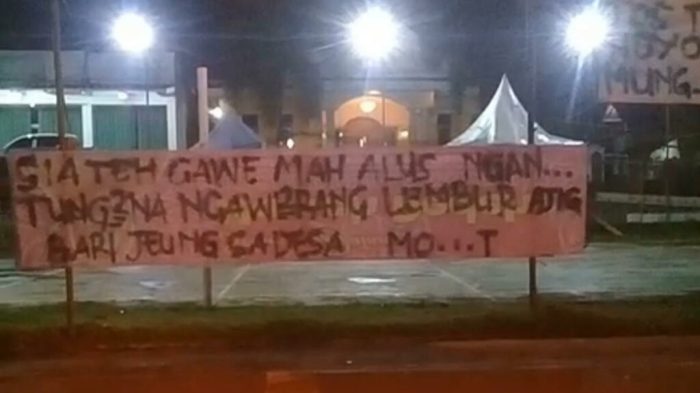 SIA TEH GAWE MAH ALUS NGAN...
TUNG2NA NGAWERANG LEMBUR AJIG
BARI JEUNG SADESA MO...T
MUNG..